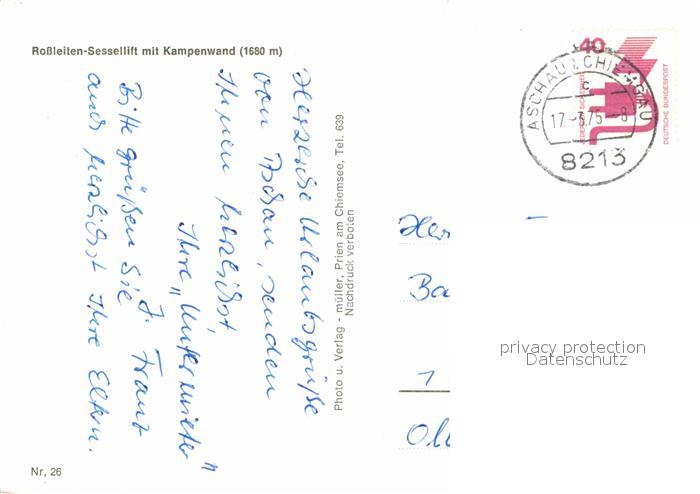 Roßleiten-Sessellift mit Kampenwand (1680 m)
Herzliche Urlaubsgrüße
von Aschau, senden
Ihnen herzlichst
Ihre "Untermieter"
J. Franz
Bitte grüßen Sie
auch herzlichst Ihre Eltern.
Nr, 26
Photo u. Verlag - müller, Prien am Chiemsee, Tel. 639
Nachdruck verboten
40
DEUTSCHE BUNDESPOST
ASCHAU I. CHIEMGAU
c
17.-3.75-8
8213
Her
Ba
1
privacy protection
Datenschutz